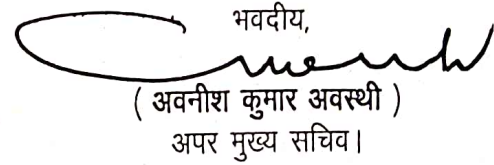 भवदीय,
( अवनीश कुमार अवस्थी )
अपर मुख्य सचिव।